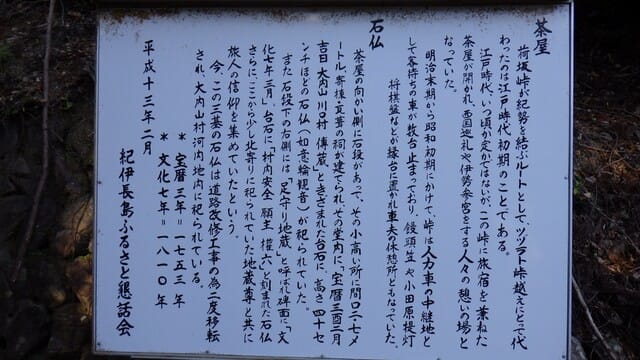 茶屋
荷坂峠が紀勢を結ぶルートとして、ツヅラト峠越えにとって代
わったのは江戸時代初期のことである。
江戸時代、いつ頃か定かではないが、この峠に旅宿を兼ねた
茶屋が開かれ、西国巡礼や伊勢参宮をする人々の憩いの場と
なっていた。
明治末期から昭和初期にかけて、峠は人力車の中継地と
して客待ちの車が数台止まっており、饅頭笠や小田原提灯
将棋盤などが縁台に置かれ車夫の休憩所ともなっていた。
石仏
茶屋の向かい側に石段があって、その小高い所に間口二・七メ
ートル、寄棟・瓦葺の祠が建てられ、その堂内に、宝暦三酉二月
吉日 大内山 川口村 傳蔵」ときざまれた台石に、高さ四十セ
ンチほどの石仏(如意輪観音)が祀られていた。
また石段下の右側には、「足守り地蔵」と呼ばれ碑面に「文
化七年二月」、台石に「村内安全 願主 権六」と刻まれた石仏
さらに、ここから少し北寄りに祀られていた地蔵尊と共に
旅人の信仰を集めていたという。
今、この三基の石仏は道路改修工事の為二度移転
され、大内山村河内地内に祀られている。
*宝暦三年=一七五三年
*文化七年=一八一〇年
平成十三年二月
紀伊長島ふるさと懇話会